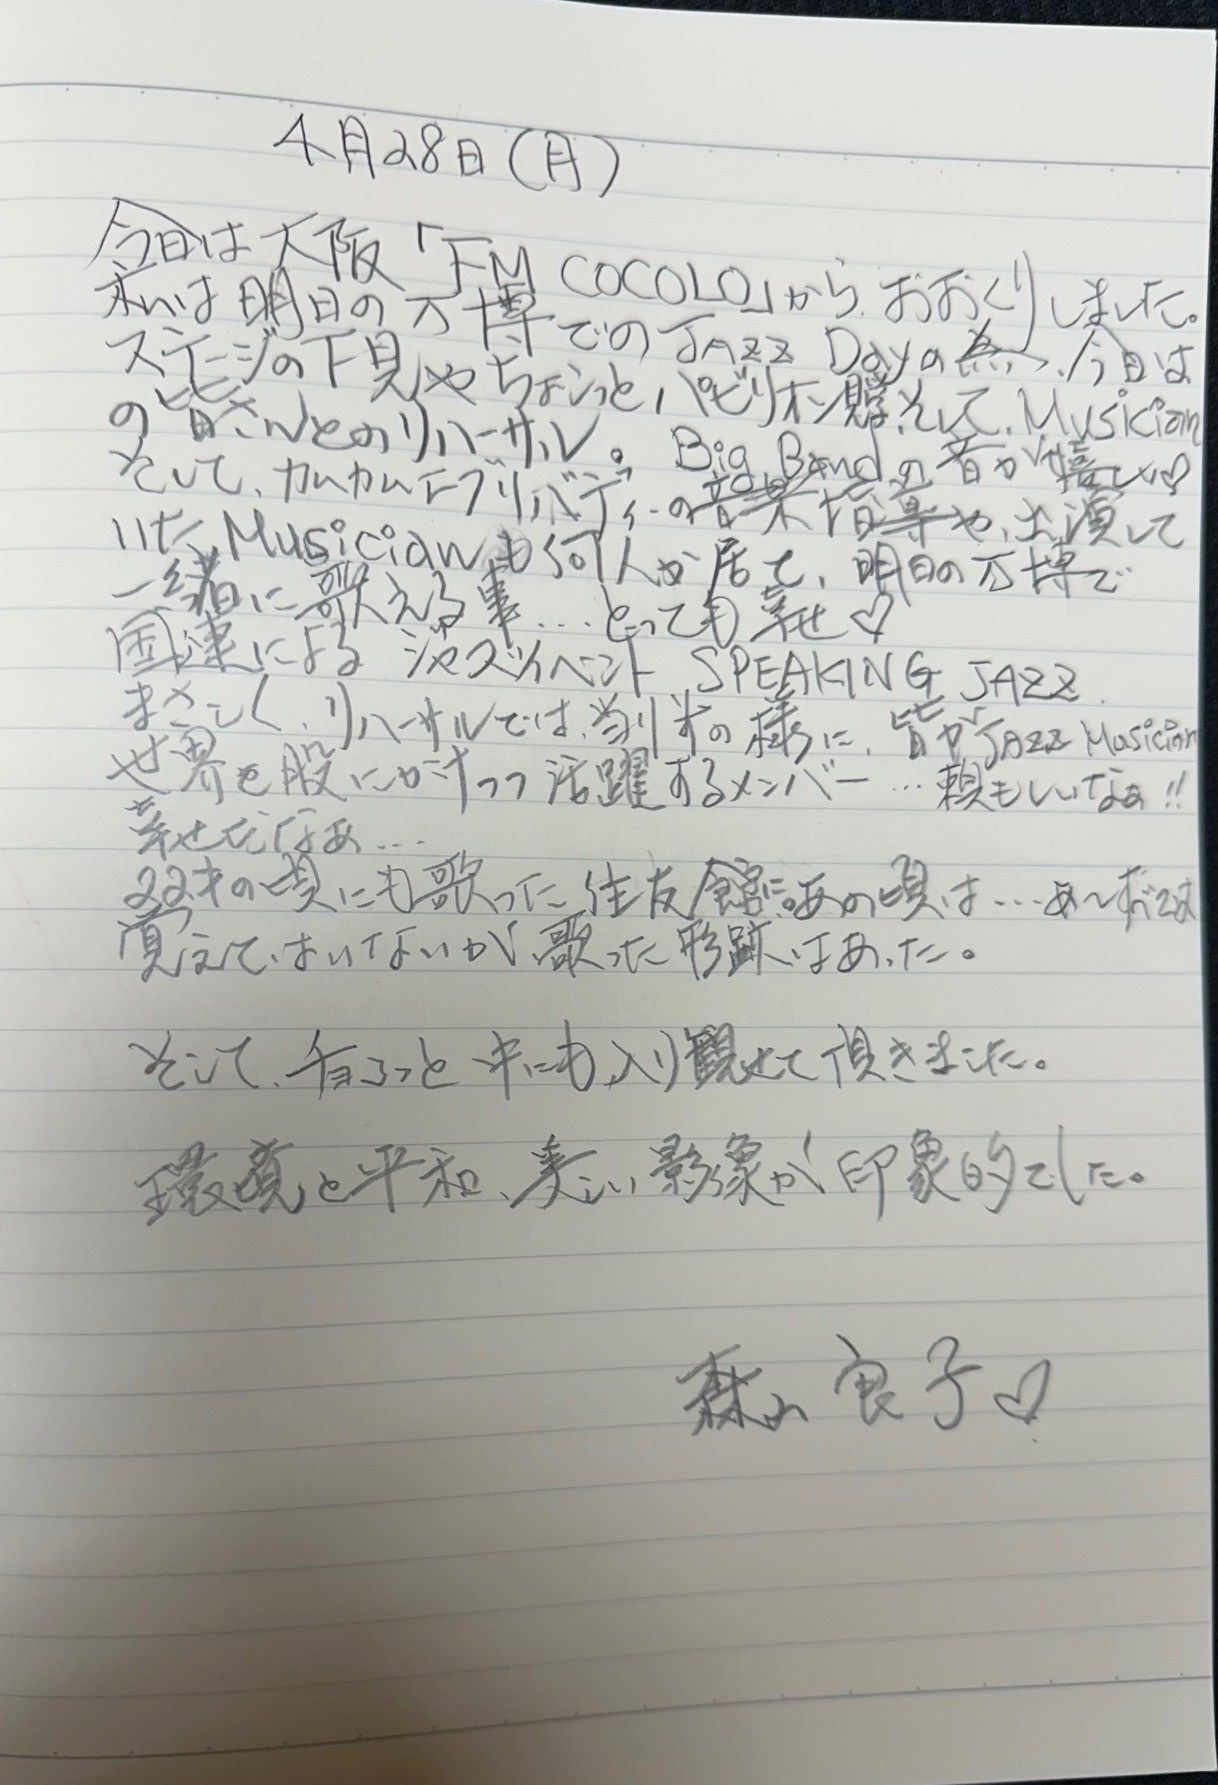 4月28日(月)
今日は大阪「FM COCOLO」から、おおくりしました。
私は明日の万博でのJAZZ Dayの為、今日は
ステージの下見やちょっとパビリオン見学そして、Musician
の皆さんとのリハーサル。Big Bandの音が嬉しい♡
そして、カムカムエヴリバディの音楽指導や、出演して
いたMusicianも何人か居て、明日の万博で
一緒に歌える事...とっても幸せ♡
国連によるジャズイベント SPEAKING JAZZ
まさしく、リハーサルでは、当り前の様に、皆がJAZZ Musician
世界を股にかけつつ活躍するメンバー...頼もしいなぁ!!
幸せだなぁ...
22才の頃にも歌った住友館に。あの頃は...あ〜
覚えてはいないが歌った形跡はあった。
そして、チョコっと中にも入り観せて頂きました。
環境と平和、美しい影像が印象的でした。
森山良子♡